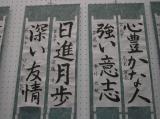 心豊かな人
強い意志
日進月歩
深い友情